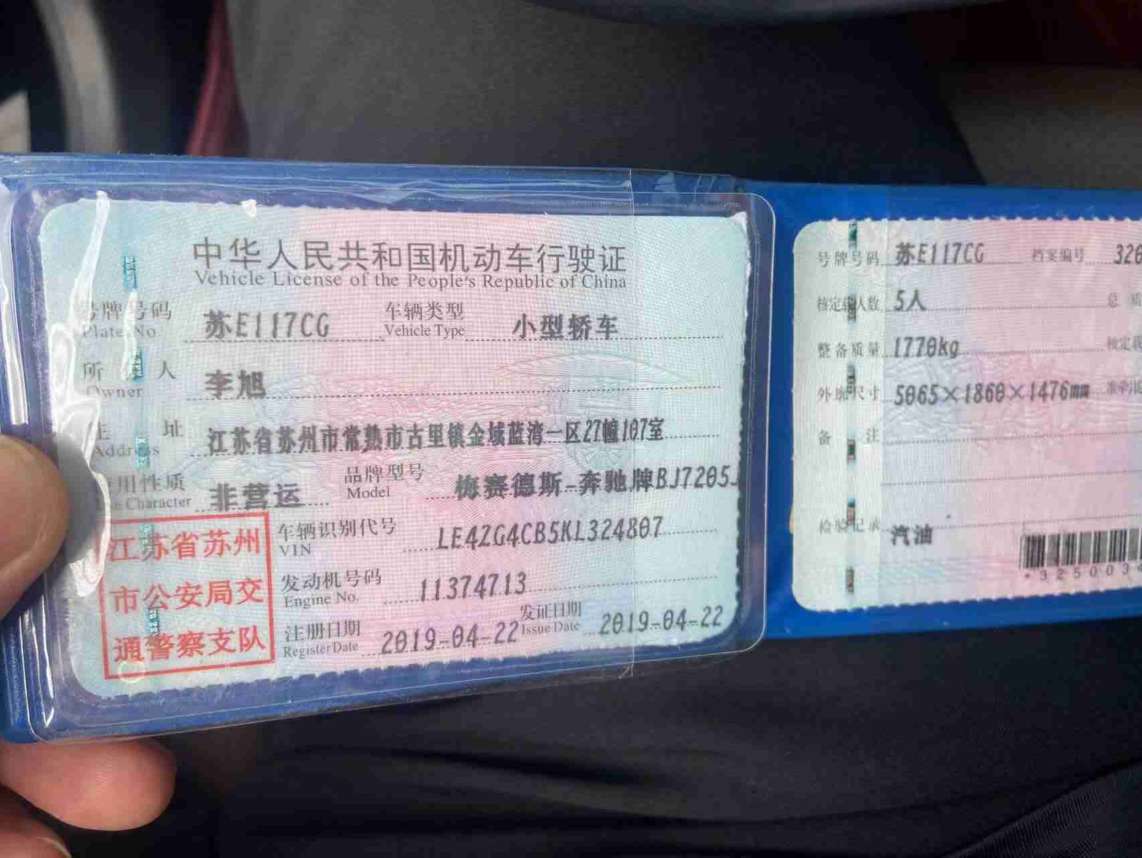 中华人民共和国机动车行驶证
Vehicle License of the People's Republic of China
号牌号码 苏E117CG 车辆类型 小型轿车
Plate No. Vehicle Type
所 人 李旭
Owner
住 址 江苏省苏州市常熟市古里镇金域蓝湾一区27幢107室
Address
用性质 非营运 品牌型号 梅赛德斯-奔驰牌BJ7205J
Character Model
江苏省苏州
市公安局交
通警察支队
车辆识别代号 LE4ZG4CB5KL324807
VIN
发动机号码 11374713
Engine No.
注册日期 2019-04-22 发证日期 2019-04-22
Register Date Issue Date
号牌号码 苏E117CG 档案编号 320
核定载人数 5人 总
整备质量 1770kg 核定载
外廓尺寸 5065×1860×1476mm
备 注
检验记录 汽油
*3250034